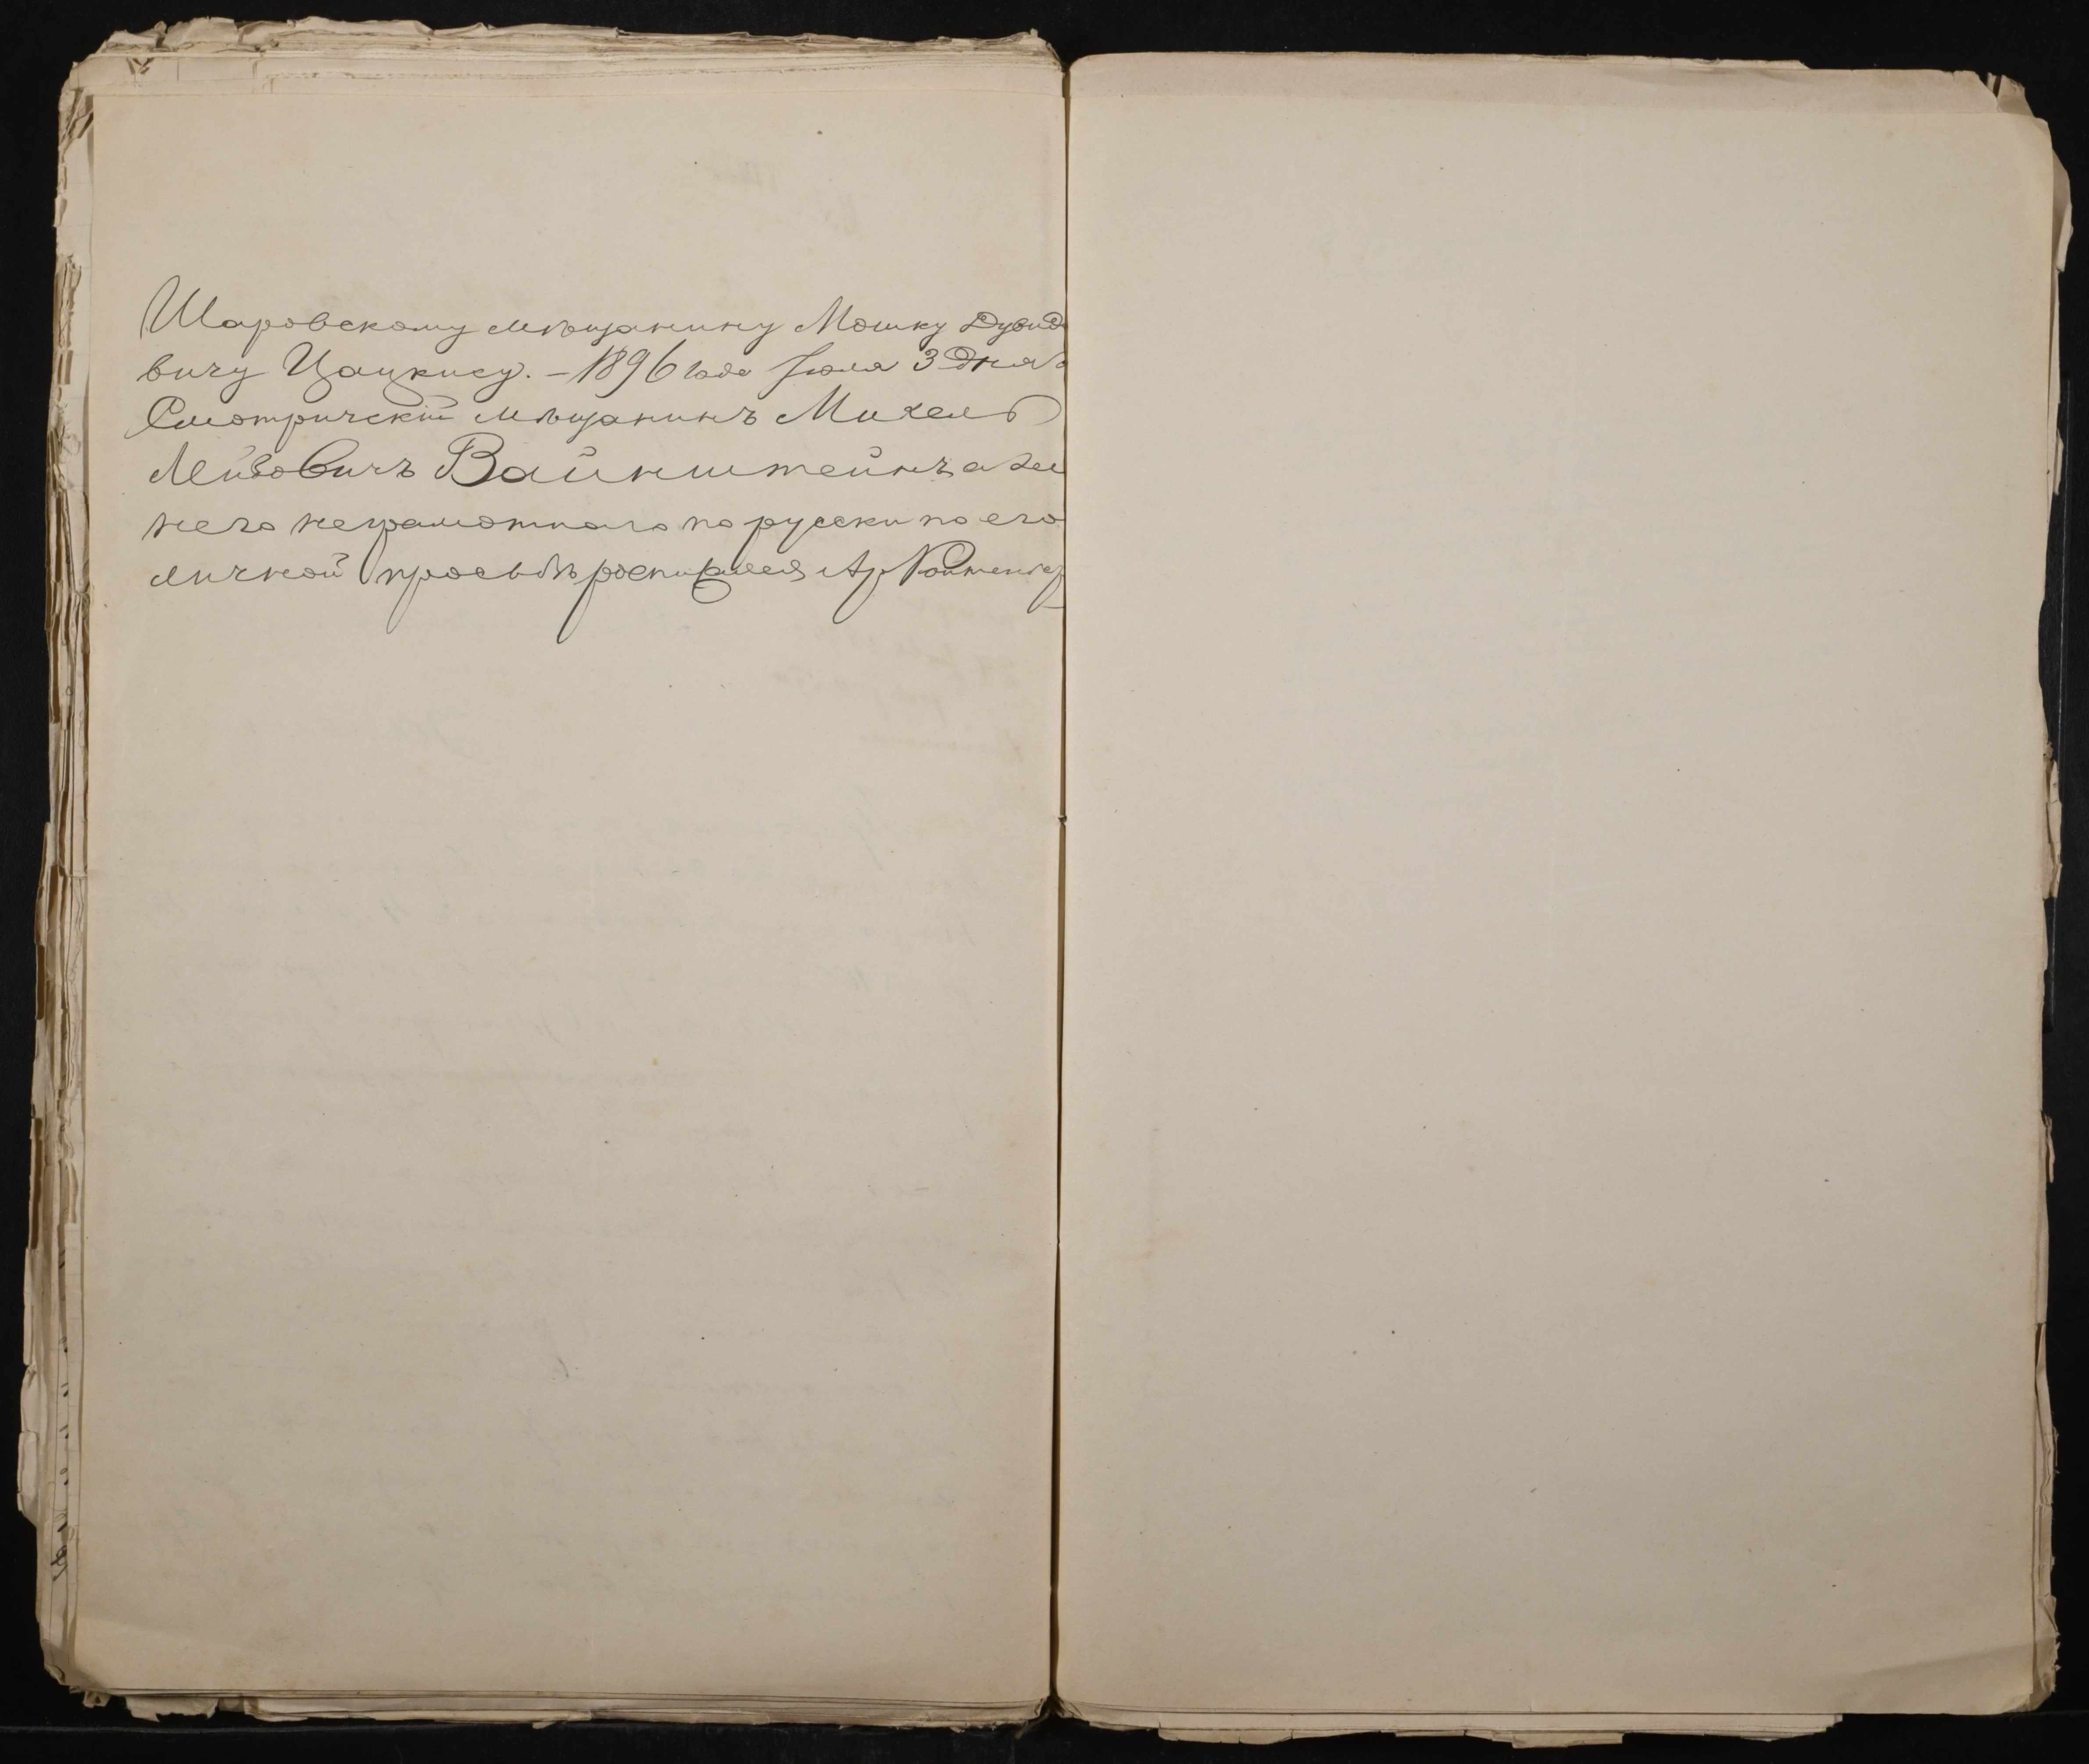 Шаровскому мѣщанину Мошку Дувид
вичу Цацкису. – 1896 года Іюля 3 дня
Смотричскій мѣщанинъ Михель
Лейбовичъ Вайнштейнъ а за
него неграмотнаго по русски по его
личной просьбѣ росписался Ар